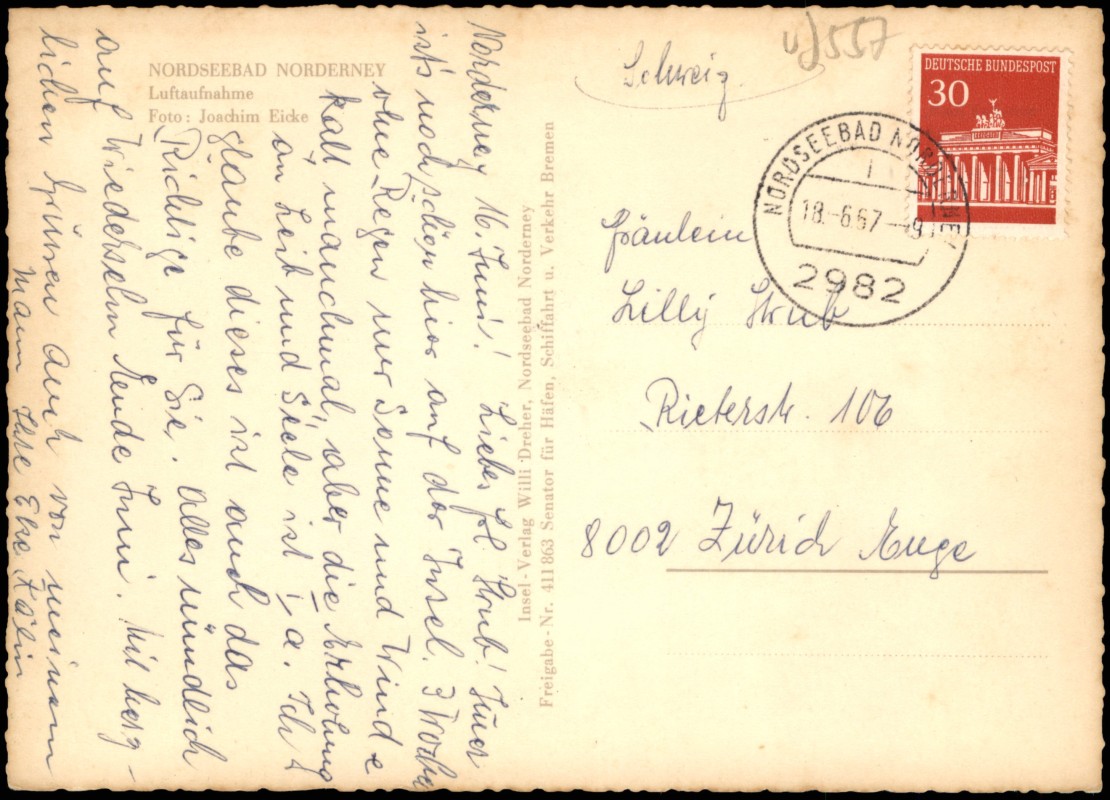 NORDSEEBAD NORDERNEY
Luftaufnahme
Foto: Joachim Eicke
Norderney 16. Juni! Liebes Frl. Strub! Immer
ist's noch schön hier auf der Insel. 3 Wochen
ohne Regen nur Sonne und Wind
kalt manchmal, aber die Erholung
an Leib und Seele ist I a. Ich
glaube dieses ist auch das
Richtige für Sie. Alles mündlich
auf Wiedersehn Ende Juni. Mit herz-
lichen Grüssen auch von meinem
Mann Ihre Else Kälin
Insel-Verlag Willi Dreher, Nordseebad Norderney
Freigabe-Nr. 411863 Senator für Häfen, Schiffahrt u. Verkehr Bremen
557
Schweiz
DEUTSCHE BUNDESPOST
30
NORDSEEBAD NORDERNEY
18.-6.67 -9
2982
Fräulein
Lilly Strub
Rieterstr. 106
8002 Zürich Enge